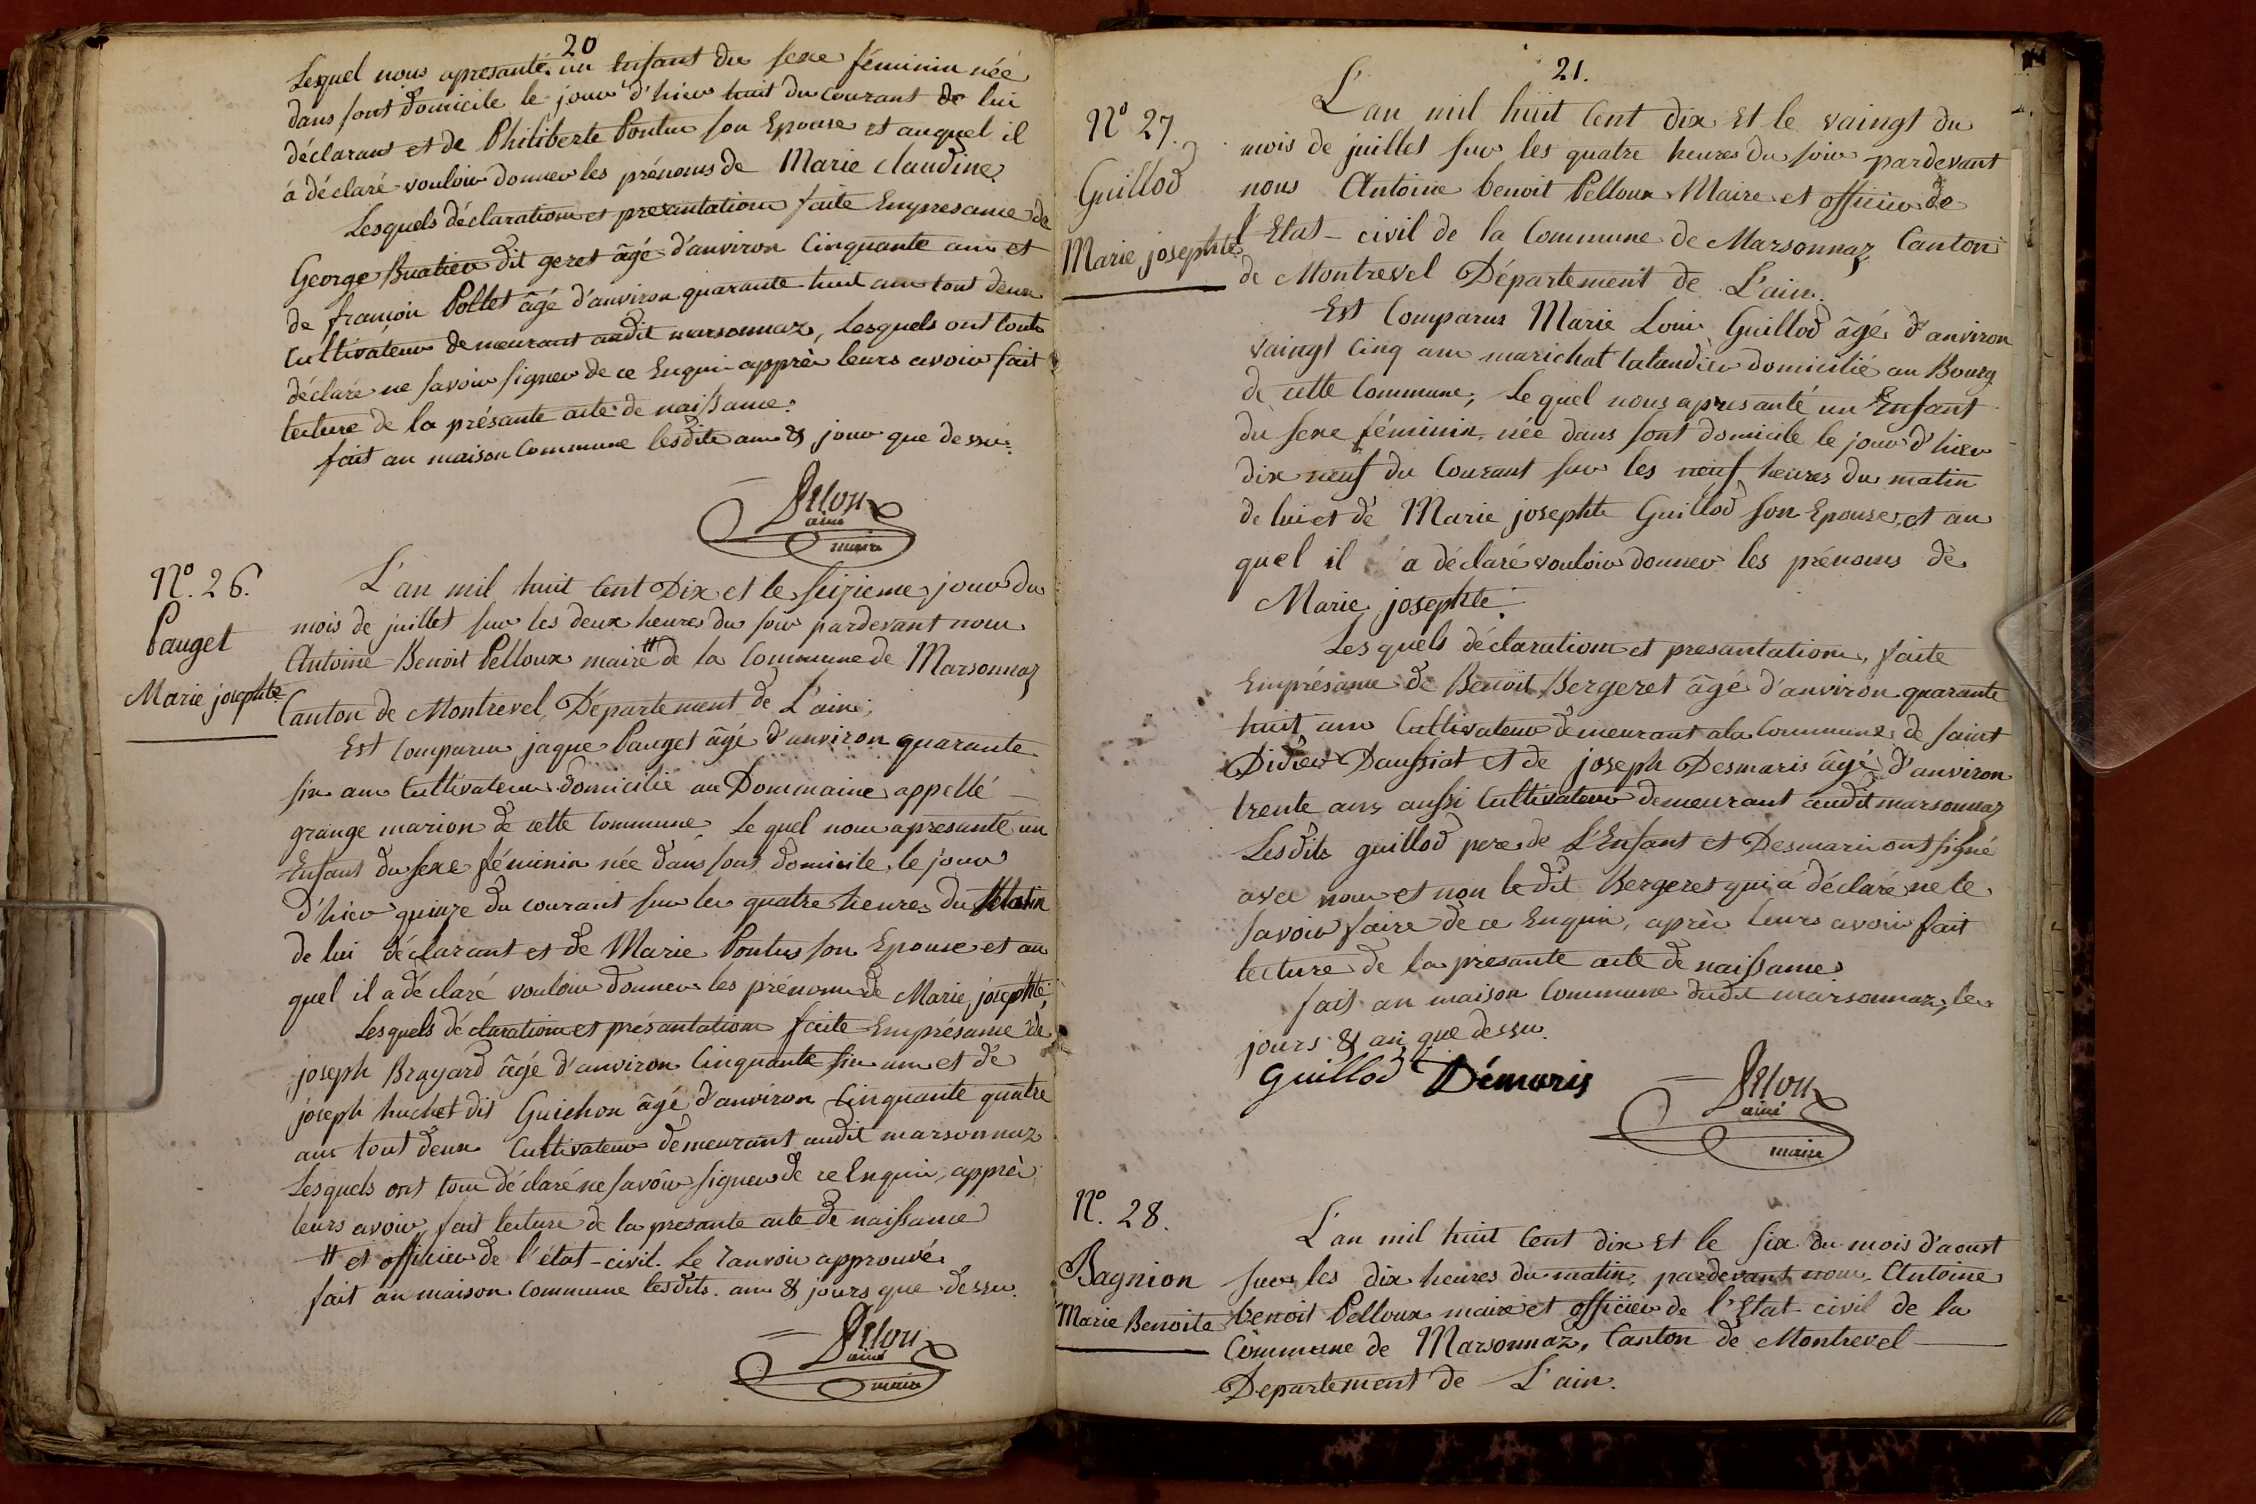 20
Lesquel nous apresanté un Enfant du sexe féminin née
dans sont domicile le jour d'hier huit du courant de lui
déclarant et de Philiberte Pontus son Epouse et auquel il
á déclaré vouloir donner les prénoms de Marie Claudine.
Lesquels déclaration et presantation faite Empresance de
George Buatier dit geret âgé d'anviron Cinquante ans et
de françoir Pollet âgé d'anviron quarante huit ans tout deux
Cultivateur demeurant audit marsonnaz, Lesquels ont touts
déclaré ne savoir signer de ce Enquis apprèr leurs avoir fait
lecture de la présante acte de naissance.
fait au maison Commune lesdits ans & jour que dessu.
Pelou
ainé
maire
N°. 26.
Pauget
Marie josephte
L'an mil huit Cent Dix et le seizieme jour du
mois de juillet sur les deux heures du soir pardevant nous
Antoine Benoit Pelloux maire # de la Commune de Marsonnaz
Canton de Montrevel, Département de L'ain;
Est Comparu jaque Pauget âgé d'anviron quarante
six ans Cultivateur domicilié au Dommaine appellé
grange marion de cette Commune, Le quel nous apresanté un
Enfant du sexe féminin née dans sont domicile, le jour
d'hier quinze du courant sur les quatre heures du Matin
de lui déclarant et de Marie Pontus son Epouse et au
quel il a déclaré vouloir donner les prénoms de Marie, josephte;
Lesquels déclaration et présantation faite Emprésance de
joseph Brayard âgé d'anviron Cinquante six ans et de
joseph huchet dit Guichon âgé d'anviron Cinquante quatre
ans tout deux Cultivateur demeurant audit marsonnaz
Lesquels ont tous déclaré ne savoir signer de ce Enquis, apprèr
leurs avoir fait lecture de la presante acte de naissance
# et officier de l'état-civil. Le ranvoir approuvé.
fait au maison Commune lesdits ans & jours que dessu.
Pelou
ainé
maire
21.
N° 27.
Guillod
Marie josephte
L'an mil huit Cent dix Et le vaingt du
mois de juillet sur les quatre heures du soir pardevant
nous Antoine benoit Pelloux Maire et officier de
l'Etat-civil de la Commune de Marsonnaz Canton
de Montrevel Département de L'ain.
Est Comparus Marie Louis Guillod âgé d'anviron
vaingt Cinq ans marichat talandier domicilié au Bourg
de cette Commune, Le quel nous apresanté un Enfant
du sexe féminin, née dans sont domicile le jour d'hier
dix neuf du Courant sur les neuf heures du matin
de lui et de Marie josephte Guillod son Epouse, et au
quel il á déclaré vouloir donner les prénoms de
Marie josephte.
Lesquels déclaration et presantation, faite
Emprésance de Benoit Bergeret âgé d'anviron quarante
huit ans Cultivateur demeurant ala Commune de saint
Didier Daussiat et de joseph Desmaris âgé d'anviron
trente ans aussi Cultivateur demeurant audit marsonnaz
Lesdits guillod pere de L'Enfant et Desmaris ont signé
avec nous et non le dit Bergeret qui á déclaré ne le
savoir faire de ce Enquis, aprèr leurs avoir fait
lecture de la presante acte de naissance
fait au maison Commune dudit marsonnaz, les
jours & an que dessu.
Guillod Démaris
Pelou
ainé
maire
N°. 28.
Bagnion
Marie Benoite
L'an mil huit Cent dix Et le six du mois d'aoust
sur les dix heures du matin, pardevant nous Antoine
benoit Pelloux maire et officier de l'Etat civil de la
Commune de Marsonnaz, Canton de Montrevel
Departement de L'ain.